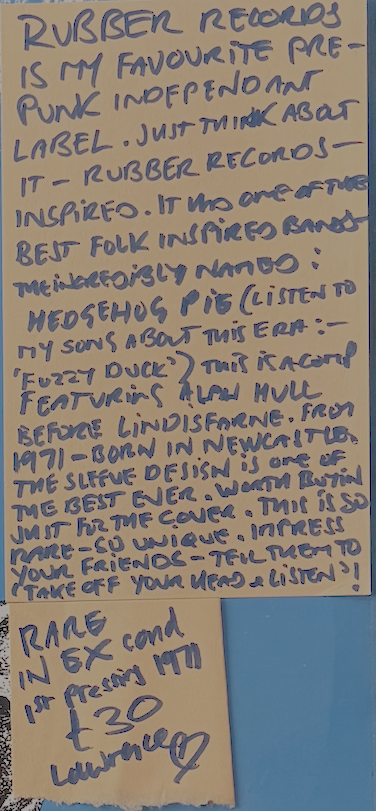 RUBBER RECORDS
IS MY FAVOURITE PRE-
PUNK INDEPENDANT
LABEL. JUST THINK ABOUT
IT - RUBBER RECORDS -
INSPIRED. IT HAS ONE OF THE
BEST FOLK INSPIRED BANDS
THE INCREDIBLY NAMED :
HEDGEHOG PIE (LISTEN TO
MY SONG ABOUT THIS ERA :-
'FUZZY DUCK') THIS IS A COMP
FEATURING ALAN HULL
BEFORE LINDISFARNE. FROM
1971 - BORN IN NEWCASTLE.
THE SLEEVE DESIGN IS ONE OF
THE BEST EVER. WORTH BUYIN
JUST FOR THE COVER. THIS IS SO
RARE - SO UNIQUE. IMPRESS
YOUR FRIENDS - TELL THEM TO
'TAKE OFF YOUR HEAD & LISTEN'!
RARE
IN EX cond
1st pressing 1971
£30
Lawrence